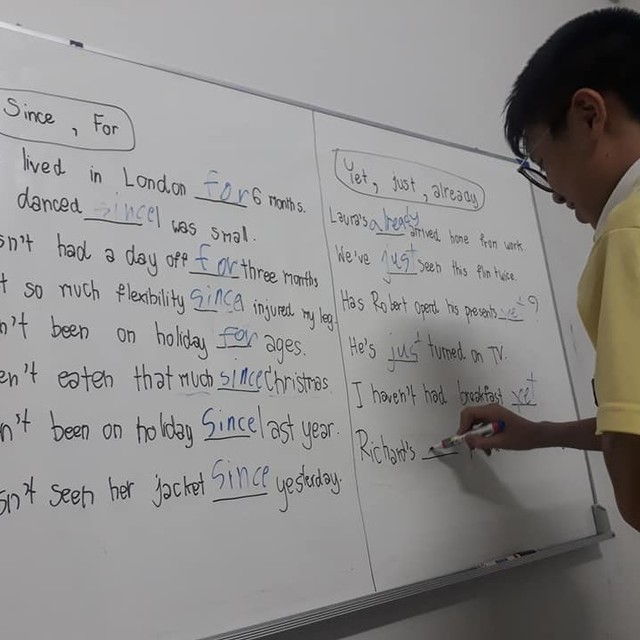 Since, For
lived in London for 6 months.
danced since I was small.
sn't had a day off for three months
t so much flexibility since I injured my leg.
n't been on holiday for ages.
en't eaten that much since Christmas.
n't been on holiday Since last year.
sn't seen her jacket Since yesterday.
Yet, just, already
Laura's already arrived home from work.
We've just seen this film twice.
Has Robert operd his presents yet?
He's just turned on TV.
I haven't had breakfast yet
Richard's